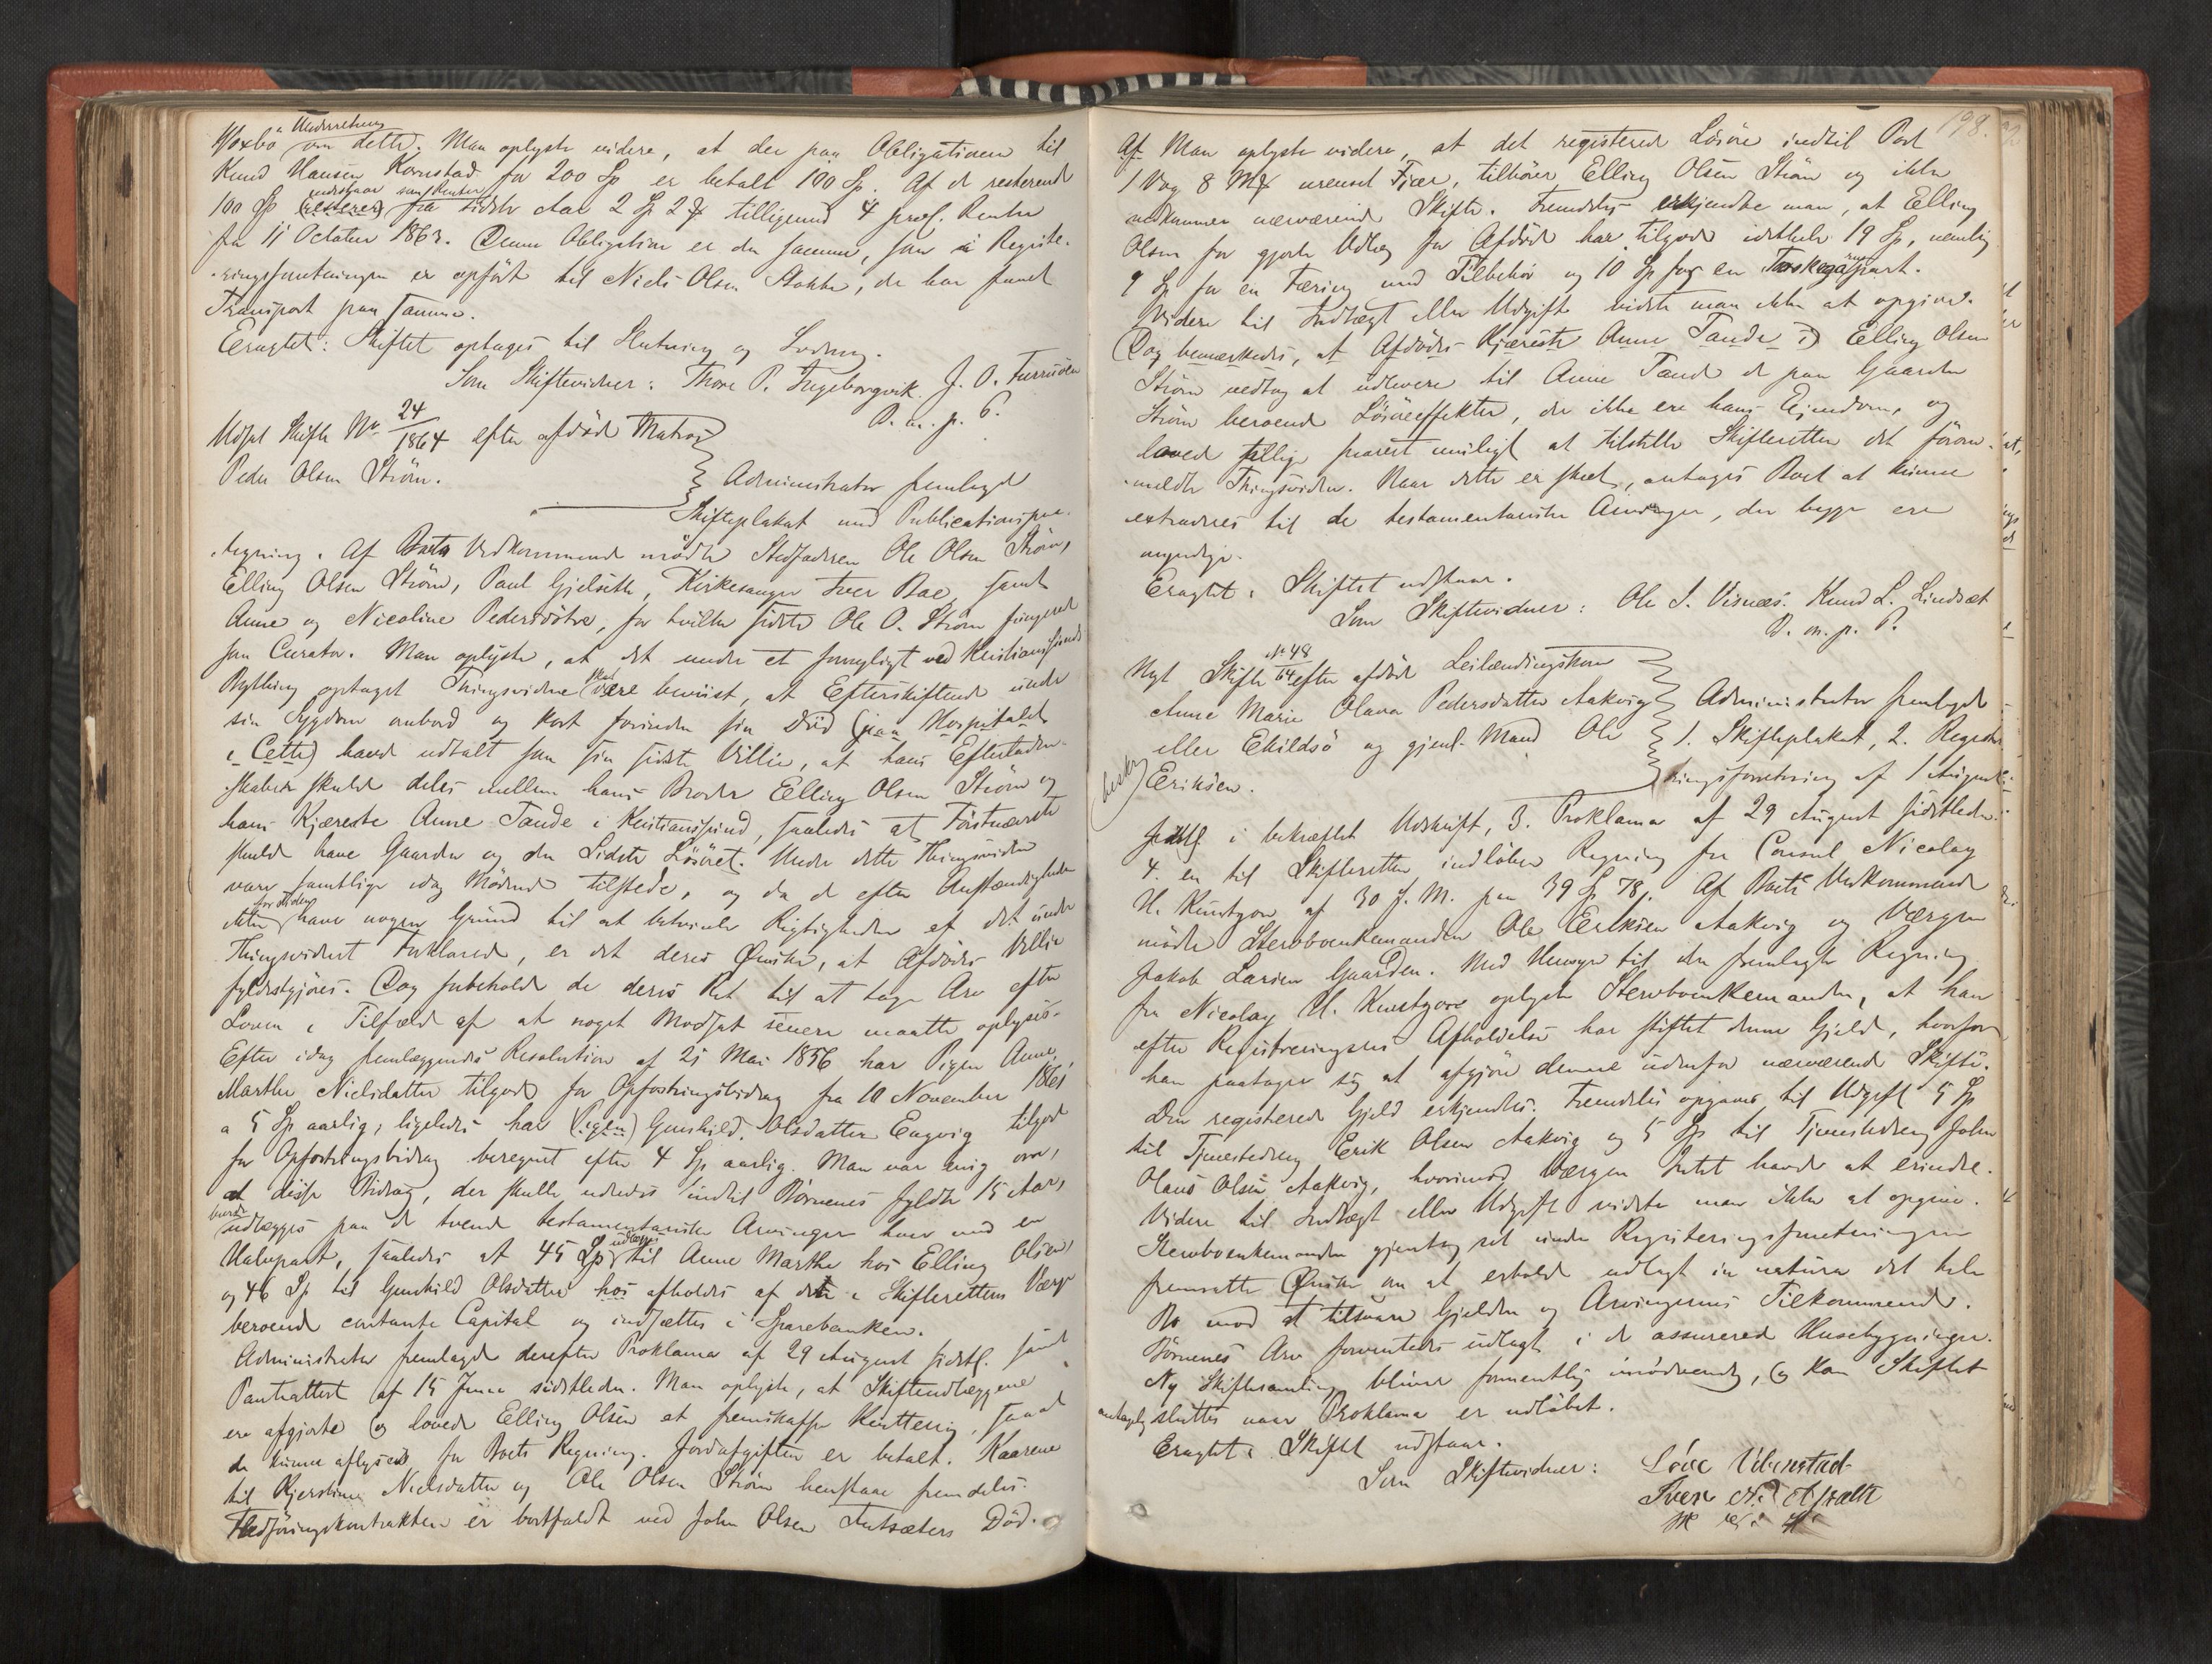 Underretning
Woxbö om dette. Man oplyste videre, at der paa Obligationen til
Knud Hansen Kornstad for 200 Sp er betalt 100 Sp. Af de resterende
indestaar som Renter
100 Sp (resterer) fra sidste Aar 2 Sp 2 tilligemed 4 proc. Renter
fra 11 October 1863. Denne Obligation er den samme, som i Registe-
ringsforretningen er opført til Niels Olsen Stokke, der har faaet
Transport paa samme.
Eragtet: Skiftet optages til Slutning og Lodning.
Som Skiftevidner: Thore P. Ingeborgvik. J. O. Furruöen
M. m. p. P.
Udsat Skifte No 24/1864 efter afdöde Matros
Peder Olsen Ström.
Administrator fremlagde
Skifteplakat med Publicationspaa-
tegning. Af Boets Vedkommende mödte Stedfaderen Ole Olsen Ström,
Elling Olsen Ström, Paul Gjelseth, Kirkesanger Iver Boe samt
Anne og Nicoline Pedersdötre, for hvilke sidste Ole O. Ström fungerede
som Curator. Man oplyste, at det under et formeligt ved Kristianssunds
skal
Bything optaget Thingsvidne være beviist, at Efterskiftende under
sin Sygdom ombord og kort forinden sin Död (paa Hospitalet
i Cette) havde udtalt som sin sidste Villie, at hans Efterladen-
skaber skulde deles mellem hans Broder Elling Olsen Ström og
hans Kjæreste Anne Tande i Kristianssund, saaledes at Förstnævnte
skulde have Gaarden og den Sidste Lösöret. Under dette Thingsvidne
vare samtlige idag Mödende tilstede, og da de efter Omstændighederne
ikke have nogen Grund til at betvivle Rigtigheden af det under
Thingsvidnet Forklarede, er det deres Ønske, at Afdödes Villie
fyldestgjöres. Dog forbeholde de deres Ret til at tage Arv efter
Loven i Tilfælde af at noget Modsat senere maatte oplyses.
Efter idag fremlæggendes Resolution af 21 Mai 1856 har Pigen Anne
Marthe Nielsdatter tilgode for Opfostringsbidrag fra 10 November 1861
a 5 Sp aarlig, ligeledes har (igjen) Gunhild Olsdatter Engvig tilgode
for Opfostringsbidrag beregnet efter 4 Sp aarlig. Man var enig om,
at disse Bidrag, der skulle udredes indtil Börnenes fyldte 15 Aar,
burde
udlægges paa de tvende testamentariske Arvinger hver med en
udlægges
Halvpart, saaledes at 45 Sp til Anne Marthe hos Elling Olsen
og 46 Sp til Gunhild Olsdatter hos afholdes af det i Skifterettens Værge
beroende contante Capital og indsættes i Sparebanken.
Administrator fremlagde derefter Proklama af 29 August sidstl. samt
Pantattest af 15 Juni sidstleden. Man oplyste, at Skifteudlæggene
ere afgjorte og lovede Elling Olsen at fremskaffe Kvittering, saa at
de kunne aflyses for Boets Regning. Jordafgiften er betalt. Kaarene
til Kjerstine Nielsdatter og Ole Olsen Ström henstaae fremdeles.
Flædföringskontrakten er bortfaldt ved John Olsen Futsæters Död.
198.
Af Man oplyste videre, at det registerede Lösöre indtil Post
1 Vog 8 Mk urenset Fjær, tilhörer Elling Olsen Ström og ikke
vedkommer nærværende Skifte. Fremdeles erkjendte man, at Elling
Olsen for gjorte Udlæg for Afdöde har tilgode idethele 19 Sp, nemlig
9 Sp for en Færing med Tilbehör og 10 Sp for en Torskegarnspart.
Videre til Indtægt eller Udgift vidste man ikke at opgive.
(Dog bemærkedes, at Afdödes Kjæreste Anne Tande i) Elling Olsen
Ström vedtog at udlevere til Anne Tande de paa Gaarden
Ström beroende Lösöreeffekter, der ikke ere hans Ejendom, og
lovede tillige snarest muligt at tilstille Skifteretten det foran-
meldte Thingsvidne. Naar dette er skeet, antages Boet at kunne
extraderes til de testamentariske Arvinger, der begge ere
myndige.
Eragtet: Skiftet udstaar.
Som Skiftevidner: Ole I. Visnæs. Knud L. Lindsæt
M. m. p. P.
Nyt Skifte No 48/64 efter afdöde Leilændingskone
Anne Marie Olava Pedersdatter Aakvig
eller Ekildsö og gjenl. Mand Ole
Eriksen.
beskr
Administrator fremlagde
1. Skifteplakat, 2. Registe-
ringsforretning af 1 August
sidstl i bekræftet Udskrift, 3. Proklama af 29 August sidstleden
4. en til Skifteretten indlöben Regning fra Consul Nicolay
H. Knutzon af 30 f. M. paa 39 Sp 78. Af Boets Vedkommende
mödte Stervboenkemanden Ole Eriksen Aakvig og Værgen
Jakob Larsen Gaarden. Med Hensyn til den fremlagte Regning
fra Nicolay H. Knutzon oplyste Stervboenkemanden, at han
efter Registreringens Afholdelse har stiftet denne Gjeld, hvorfor
han paatager sig at afgjöre denne udenfor nærværende Skifte.
Den registerede Gjeld erkjendtes. Fremdeles opgaves til Udgift 5 Sp
til Tjenestedreng Erik Olsen Aakvig og 5 Sp til Tjenestedreng John
Olaus Olsen Aakvig, hvorimod Værgen Intet havde at erindre.
Videre til Indtægt eller Udgift vidste man ikke at opgive.
Stervboenkemanden gjentog sit under Registeringsforretningen
fremsatte Ønske om at erholde udlagt in natura det hele
Bo mod at tilsvare Gjelden og Arvingernes Tilkommende.
Börnenes Arv forventedes udlagt i de assurerede Huusebygninger.
Ny Skiftesamling bliver formentlig unödvendig, og kan Skiftet
antagelig sluttes naar Proklama er udlöbet.
Eragtet: Skiftet udstaar.
Som Skiftevidner: